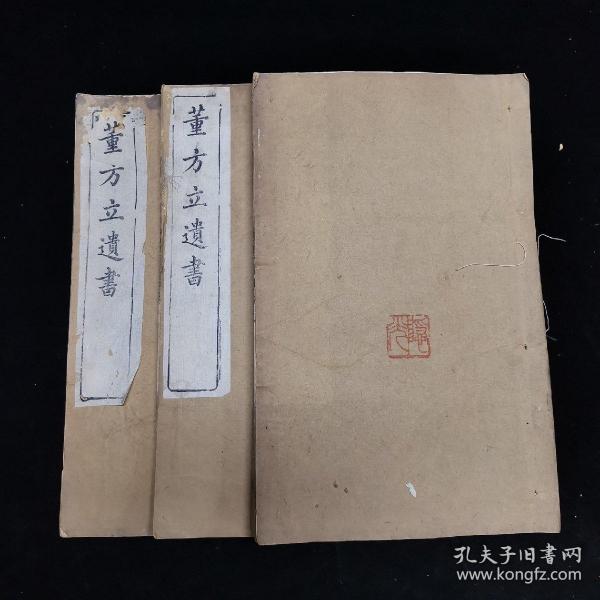 董方立遺書
董方立遺書
孔夫子旧書网
www.kongfz.com